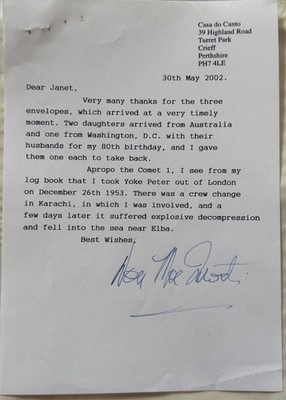 Casa do Canto
39 Highland Road
Turret Park
Crieff
Perthshire
PH7 4LE
30th May 2002.
Dear Janet,
Very many thanks for the three
envelopes, which arrived at a very timely
moment. Two daughters arrived from Australia
and one from Washington, D.C. with their
husbands for my 80th birthday, and I gave
them one each to take back.
Apropo the Comet 1, I see from my
log book that I took Yoke Peter out of London
on December 26th 1953. There was a crew change
in Karachi, in which I was involved, and a
few days later it suffered explosive decompression
and fell into the sea near Elba.
Best Wishes,